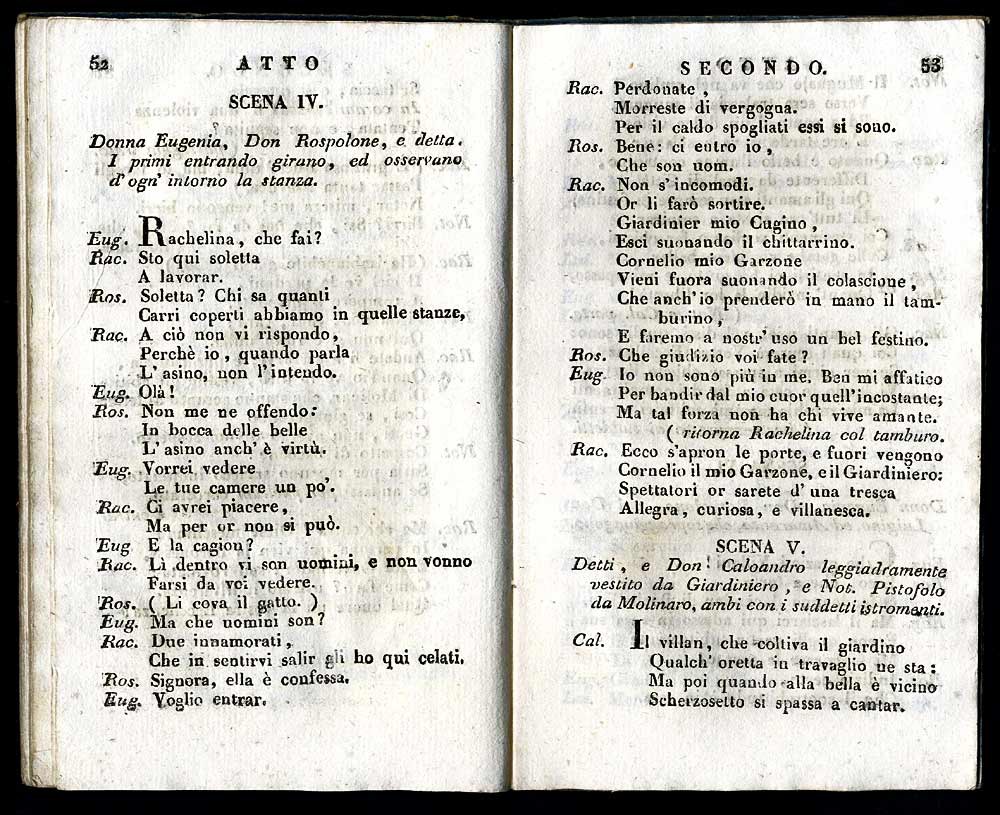 52 ATTO
SCENA IV.
Donna Eugenia, Don Rospolone, e detta.
I primi entrando girano, ed osservano
d'ogn' intorno la stanza.
Eug. Rachelina, che fai?
Rac. Sto qui soletta
A lavorar.
Ros. Soletta? Chi sa quanti
Carri coperti abbiamo in quelle stanze,
Rac. A ciò non vi rispondo,
Perchè io, quando parla
L'asino, non l'intendo.
Eug. Olà!
Ros. Non me ne offendo:
In bocca delle belle
L'asino anch'è virtù.
Eug. Vorrei vedere
Le tue camere un po'.
Rac. Ci avrei piacere,
Ma per or non si può.
Eug E la cagion?
Rac. Lì dentro vi son uomini, e non vonno
Farsi da voi vedere.
Ros. (Li cova il gatto.)
Eug. Ma che uomini son?
Rac. Due innamorati,
Che in sentirvi salir gli ho qui celati.
Ros. Signora, ella è confessa.
Eug. Voglio entrar.
SECONDO. 53
Rac. Perdonate,
Morreste di vergogna.
Per il caldo spogliati essi si sono.
Ros. Bene: ci entro io,
Che son uom.
Rac. Non s'incomodi.
Or li farò sortire.
Giardinier mio Cugino,
Esci suonando il chittarrino.
Cornelio mio Garzone
Vieni fuora suonando il colascione,
Che anch'io prenderò in mano il tam-
burino,
E faremo a nostr' uso un bel festino.
Ros. Che giudizio voi fate?
Eug. Io non sono più in me. Ben mi affatico
Per bandir dal mio cuor quell'incostante;
Ma tal forza non ha chi vive amante.
(ritorna Rachelina col tamburo.
Rac. Ecco s'apron le porte, e fuori vengono
Cornelio il mio Garzone, e il Giardiniero:
Spettatori or sarete d' una tresca
Allegra, curiosa, e villanesca.
SCENA V.
Detti, e Don Caloandro leggiadramente
vestito da Giardiniero, e Not. Pistofolo
da Molinaro, ambi con i suddetti istromenti.
Cal. Il villan, che coltiva il giardino
Qualch' oretta in travaglio ne sta:
Ma poi quando alla bella è vicino
Scherzosetto si spassa a cantar.